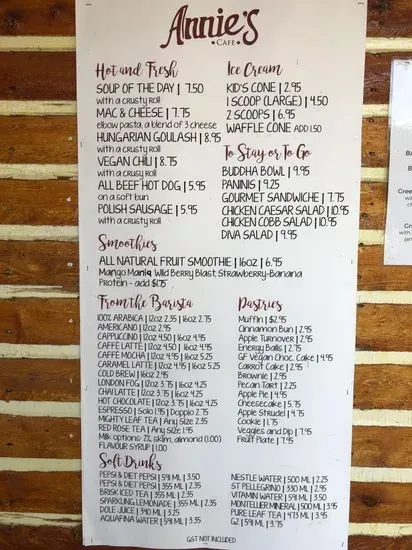 Annie's
• CAFE •
Hot and Fresh
SOUP OF THE DAY | 7.50
with a crusty roll
MAC & CHEESE | 7.75
elbow pasta, a blend of 3 cheese
HUNGARIAN GOULASH | 8.95
with a crusty roll
VEGAN CHILI | 8.75
with a crusty roll
ALL BEEF HOT DOG | 5.95
on a soft bun
POLISH SAUSAGE | 5.95
with a crusty roll
Ice Cream
KID'S CONE | 2.95
1 SCOOP (LARGE) | 4.50
2 SCOOPS | 6.95
WAFFLE CONE ADD 1.50
To Stay or To Go
BUDDHA BOWL | 9.95
PANINIS | 9.25
GOURMET SANDWICHE | 7.75
CHICKEN CAESAR SALAD | 10.95
CHICKEN COBB SALAD | 10.95
DIVA SALAD | 9.95
Smoothies
ALL NATURAL FRUIT SMOOTHIE | 16oz | 6.95
Mango Maniq, Wild Berry Blast, Strawberry-Banana
Protein - add $1.75
From the Barista
100% ARABICA | 12oz 2.35 | 16oz 2.75
AMERICANO | 12oz 2.95
CAPPUCCINO | 12oz 4.50 | 16oz 4.95
CAFFÈ LATTE | 12oz 4.50 | 16oz 4.95
CAFFÈ MOCHA | 12oz 4.95 | 16oz 5.25
CARAMEL LATTE | 12oz 4.95 | 16oz 5.25
COLD BREW | 16oz 2.95
LONDON FOG | 12oz 3.75 | 16oz 4.25
CHAI LATTE | 12oz 3.75 | 16oz 4.25
HOT CHOCOLATE | 12oz 3.75 | 16oz 4.25
ESPRESSO | Solo 1.95 | Doppio 2.75
MIGHTY LEAF TEA | Any Size 2.35
RED ROSE TEA | Any Size 1.95
Milk options: 2%, skim, almond (1.00)
FLAVOUR SYRUP | 1.00
Pastries
Muffin | $2.95
Cinnamon Bun | 2.95
Apple Turnover | 2.95
Energy Balls | 2.75
GF Vegan Choc. Cake | 4.95
Carrot Cake | 2.95
Brownie | 2.95
Pecan Tart | 2.25
Apple Pie | 4.95
Cheesecake | 5.75
Apple Strudel | 4.75
Cookie | 1.75
Veggies and Dip | 7.95
Fruit Plate | 7.95
Soft Drinks
PEPSI & DIET PEPSI | 591 ML | 3.50
PEPSI & DIET PEPSI | 355 ML | 2.35
BRISK ICED TEA | 355 ML | 2.35
SPARKLING LEMONADE | 355 ML | 2.35
DOLE JUICE | 340 ML | 3.25
AQUAFINA WATER | 591 ML | 3.35
NESTLE WATER | 500 ML | 2.25
ST PELLEGRINO | 330 ML | 2.95
VITAMIN WATER | 591 ML | 3.50
MONTELLIER MINERAL | 500 ML | 3.95
PURE LEAF TEA | 473 ML | 3.95
G2 | 591 ML | 3.75
GST NOT INCLUDED